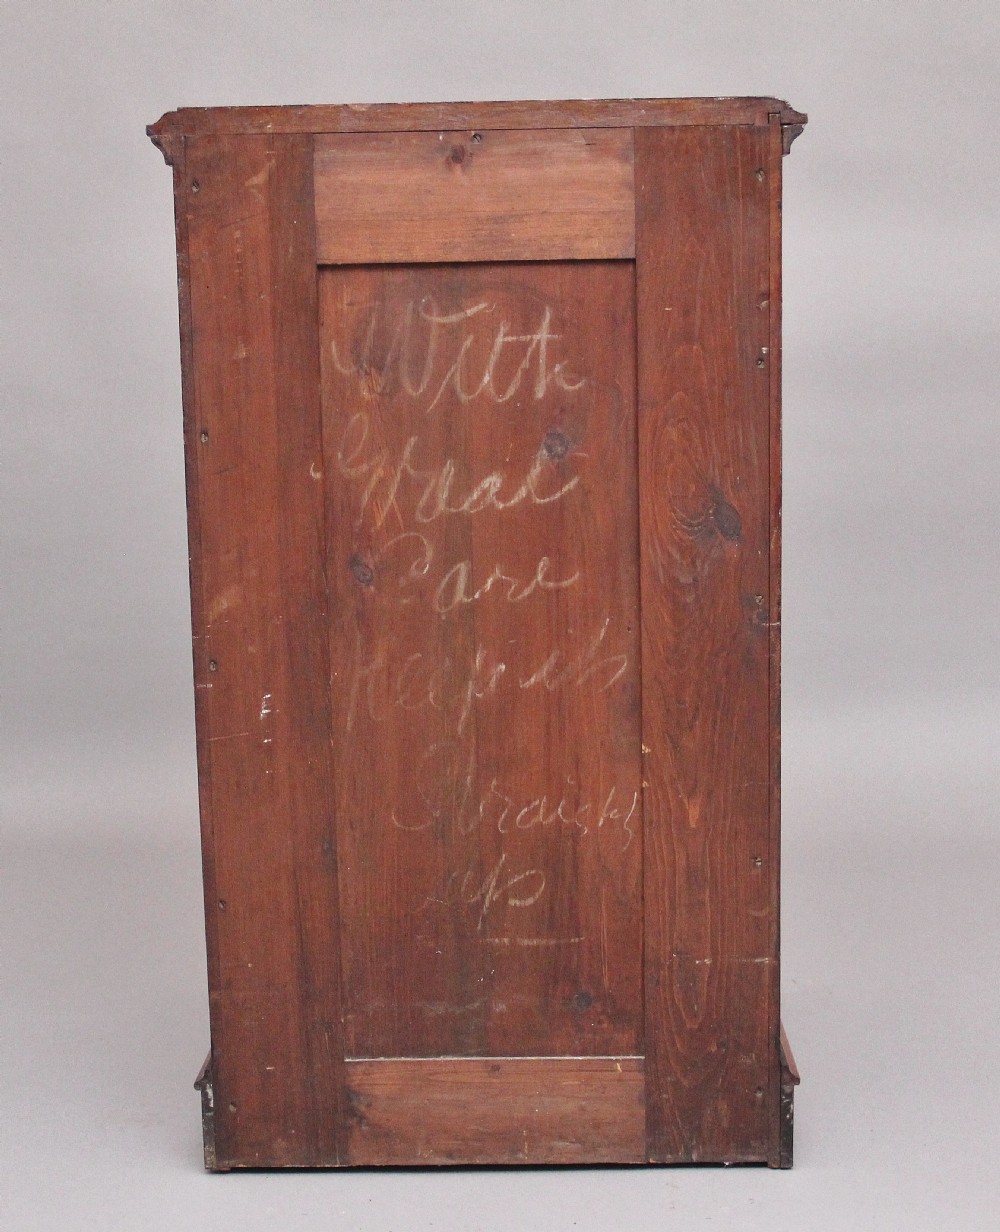 With
Great
Care
Keep this
Straight
up